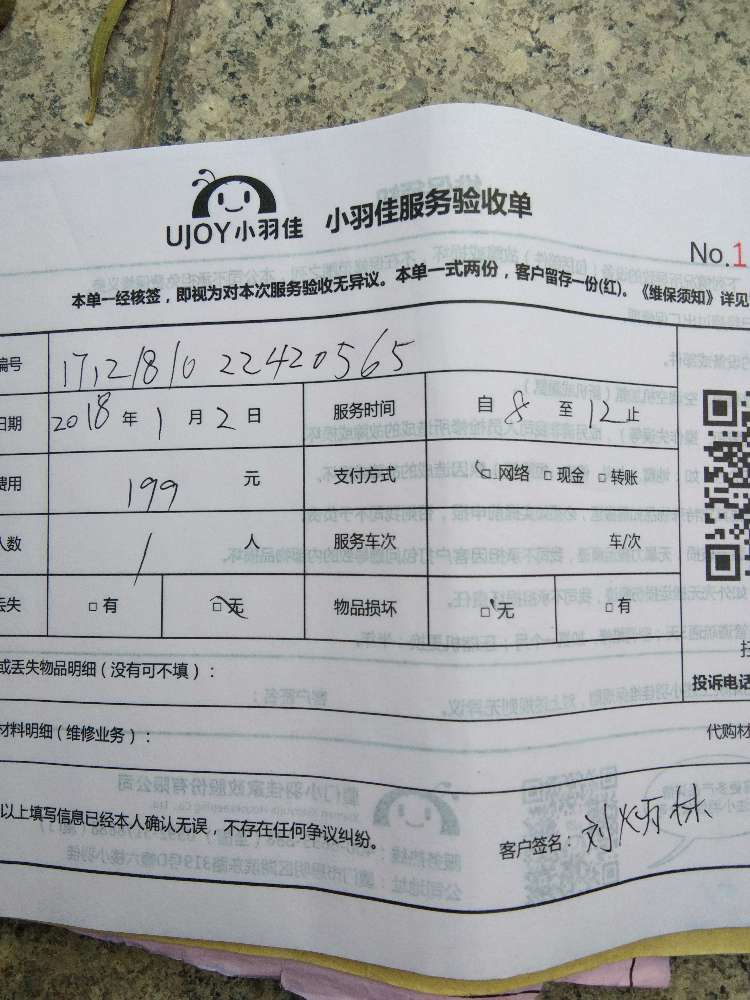 UJOY小羽佳 小羽佳服务验收单
No.1
本单一经核签，即视为对本次服务验收无异议。本单一式两份，客户留存一份(红)。《维保须知》详见
编号 1712181022420565
日期 2018年1月2日 服务时间 自8至12止
费用 199元 支付方式 □网络 □现金 □转账
人数 1人 服务车次 车/次
丢失 □有 □无 物品损坏 □无 □有
或丢失物品明细（没有可不填）：
投诉电话
材料明细（维修业务）：
代购材
以上填写信息已经本人确认无误，不存在任何争议纠纷。
客户签名：刘炳林